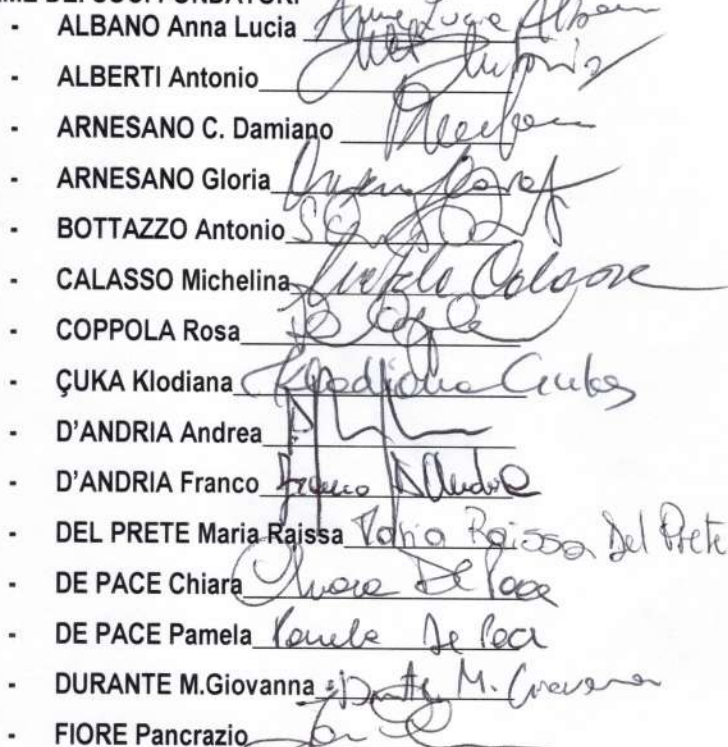 DEI SOCI FONDATORI
- ALBANO Anna Lucia Anna Lucia Albano
- ALBERTI Antonio Alberti Antonio
- ARNESANO C. Damiano
- ARNESANO Gloria Arnesano Gloria
- BOTTAZZO Antonio
- CALASSO Michelina Calasso
- COPPOLA Rosa
- ÇUKA Klodiana Klodiana Cuka
- D'ANDRIA Andrea
- D'ANDRIA Franco Franco D'Andria
- DEL PRETE Maria Raissa Maria Raissa Del Prete
- DE PACE Chiara Chiara De Pace
- DE PACE Pamela Pamela De Pace
- DURANTE M.Giovanna Durante M. Giovanna
- FIORE Pancrazio